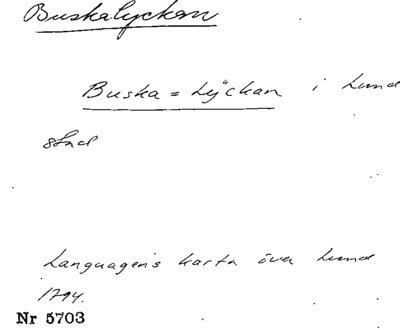 Buskalyckan
Buska = Lÿckan i Lund
stad
Languagens karta över Lund
1794.
Nr 5703